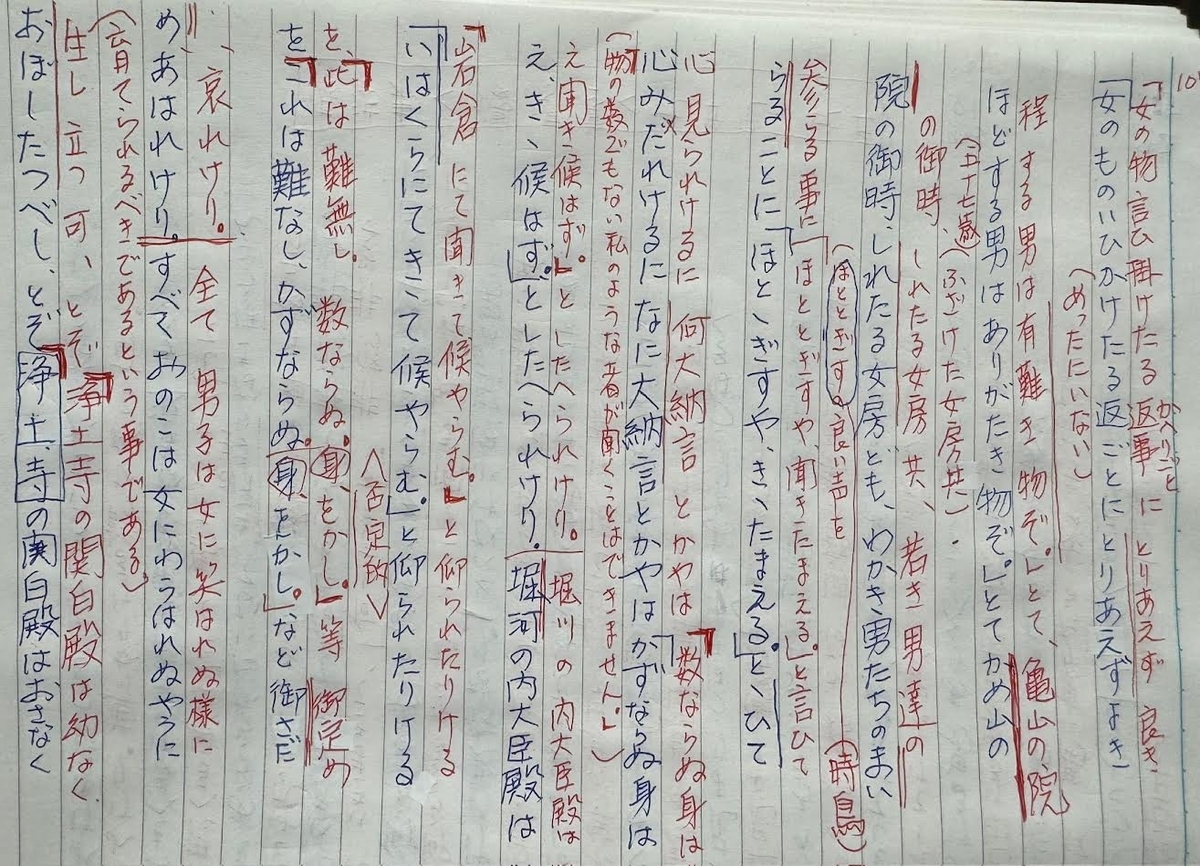 107
「女の物言ひ掛けたる返事にとりあえず良き
かへりごと
「女のものいひかけたる返ごとにとりあえずよき
(めったにいない)
程する男は有難き物ぞ。」とて、亀山の、院
ほどする男はありがたき物ぞ。」とてかめ山の
(五十七歳)(ふざけた女房共)
の御時、しれたる女房共、若き男達の
院の御時、しれたる女房ども、わかき男たちのまい
(ほととぎすの良い声を
(時鳥)
参らる事に「ほととぎすや、聞きたまえる。」と言ひて
らるごとに「ほとゝぎすや、きゝたまえる。」と、ひて
心見られけるに何大納言とかやは「数ならぬ身は
心みだれけるになに大納言とかやは「かずならぬ身は
(物の数でもない私のような者が聞くことはできません。」)
え聞き候はず。」としたへられけり。堀川の内大臣殿は
え、きゝ候はず。」としたへられけり。堀河の内大臣殿は
「岩倉にて聞きて候やらむ。」と仰られたりける
「いはくらにてきゝて候やらむ。」と仰られたりける
<否定的>
を、「此は難無し。数ならぬ。身、をかし。」等御定め
を「これは難なし、かずならぬ。身、をかし。」など御さだ
、哀れけり。全て男子は女に笑はれぬ様に
めあはれけり。すべておのこは女にわらはれぬやうに
(育てられるべきであるという事である)
生し立つ可、とぞ「浄土寺の関白殿は幼なく
おぼしたつべし、とぞ「浄土寺の関白殿はおさなく